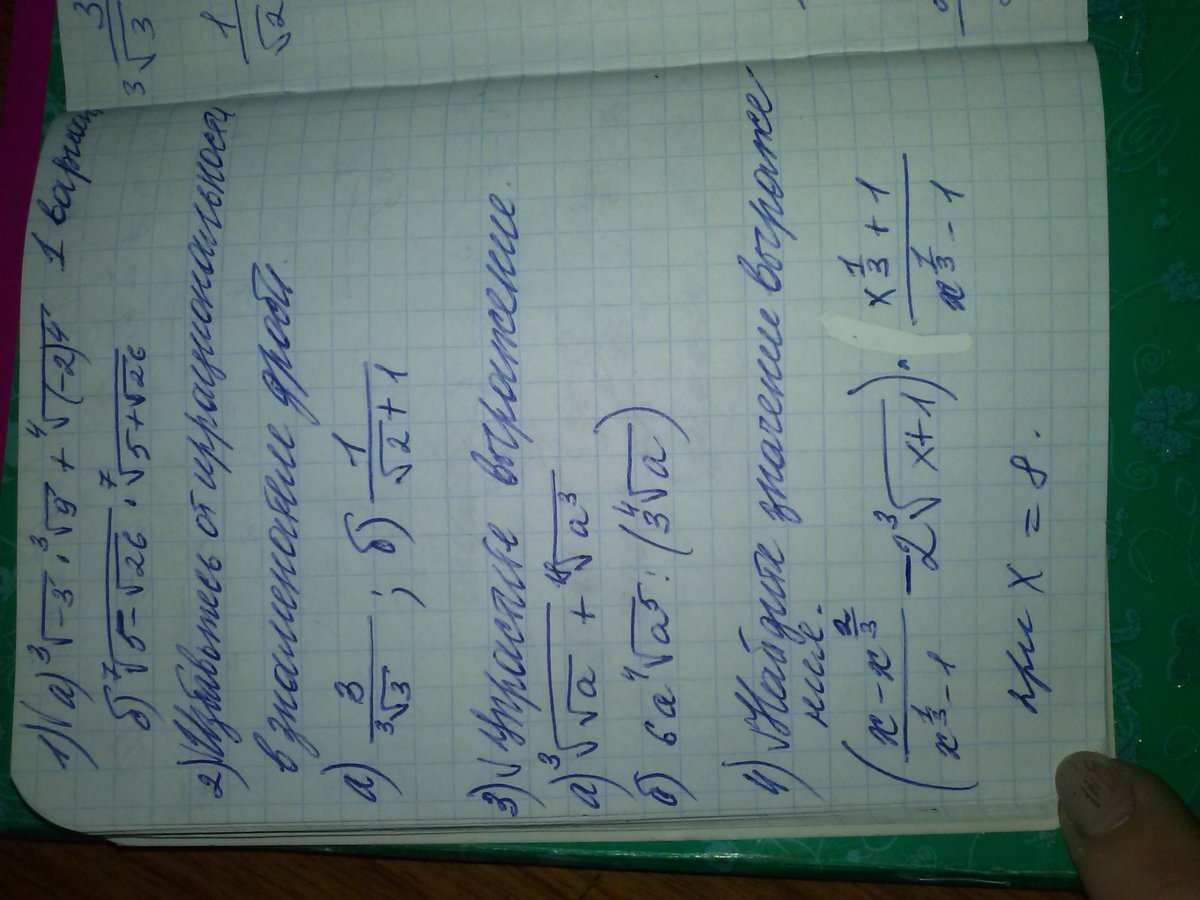 3/√3
1/√2
1) а) ∛-3 · ∛9 + ∜(-2)⁴ 1 вариан
б) ⁷√(5-√26) · ⁷√(5+√26)
2) Избавьтесь от иррациональности
в знаменателе дроби.
а) 3/∛3 ; б) 1/(√2+1)
3) Упростите выражение.
а) ∛(√a) + √a³
б) 6a ∜a⁵ : (3∜a)
4) Найдите значение выраже
ние.
((x - x^(2/3))/(x^(1/3) - 1) - 2∛(x+1)) · (x^(1/3) + 1)/(x^(1/3) - 1)
при x = 8.